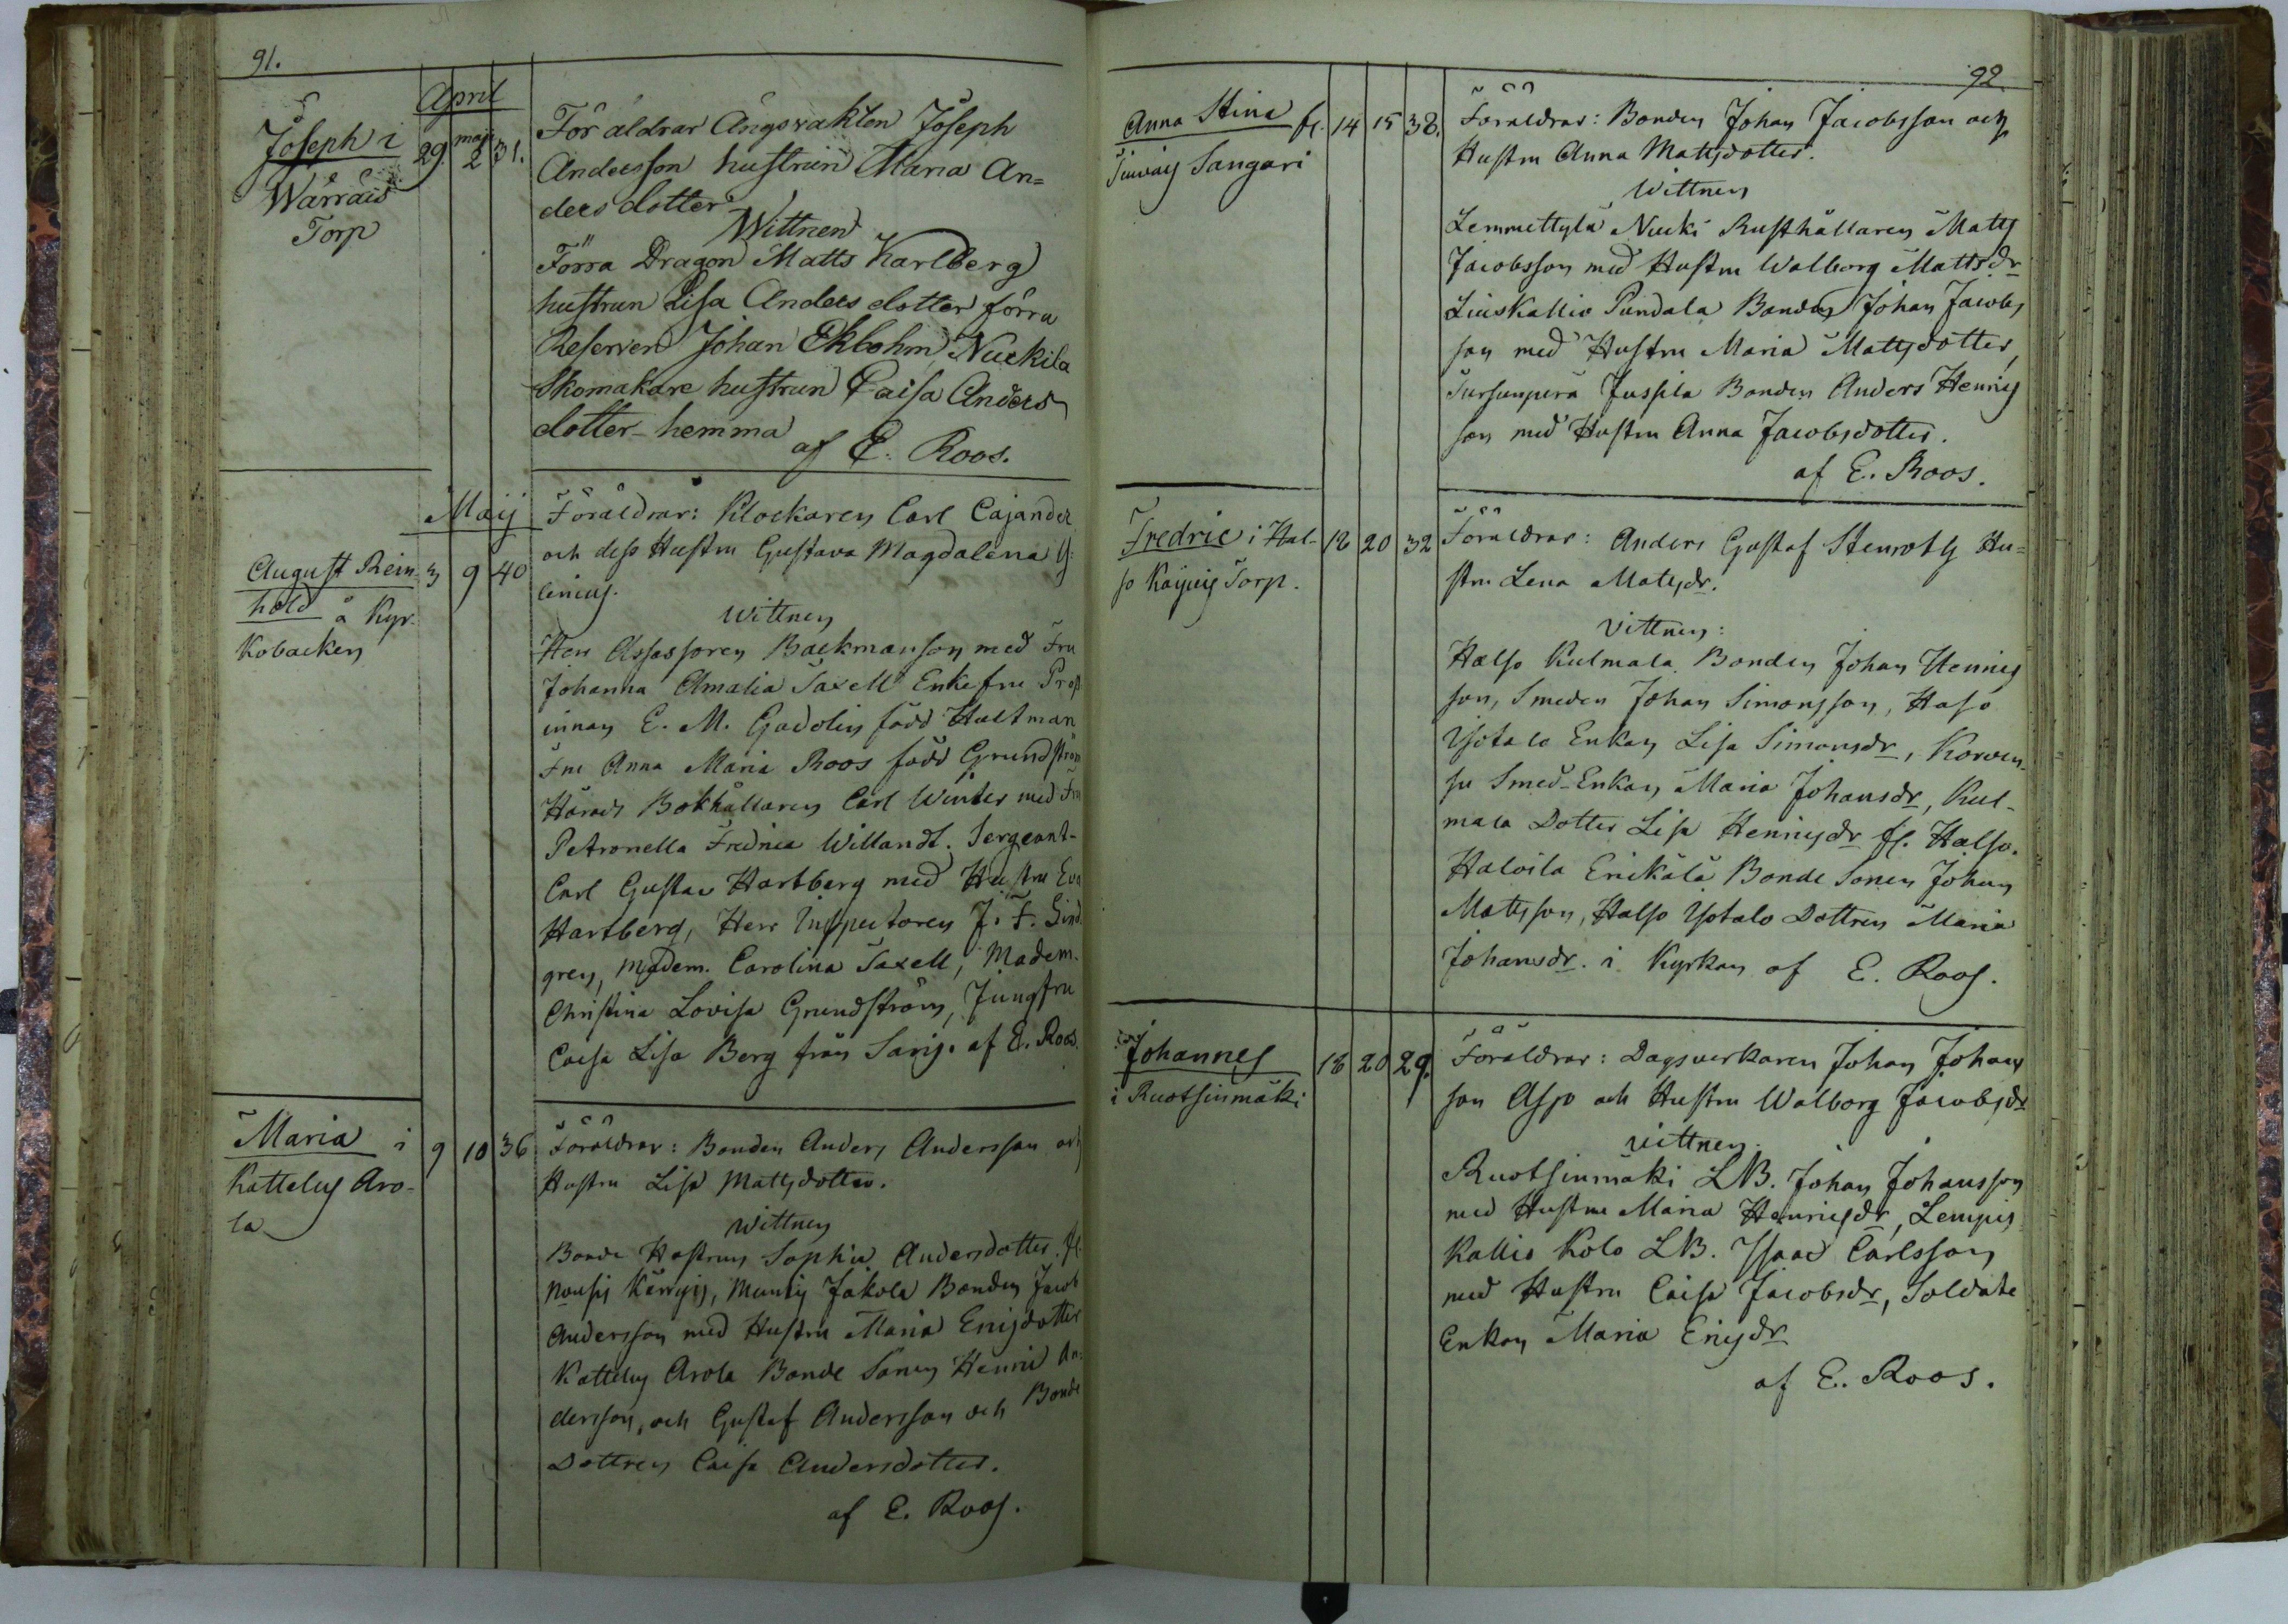 91.
April
Joseph i
Wärrais
Torp
29 maj 2 31.
För äldrar Ängsvakten Joseph
Andersson hustrun Maria An=
ders dotter
Wittnen
Förra Dragon Matts Karlberg
hustrun Lisa Anders dotter förra
Reserven Johan Ekbohm, Nuckila
Skomakare hustrun Caisa Anders
dotter - hemma
af E. Roos.
Maij
August Rein-
hold å Kyr-
kobacken
3 9 40
Föräldrar: Klockaren Carl Cajander
och dess Hustru Gustava Magdalena
lenius.
Wittnen
Herr Assessoren Backmanson med Fru
Johanna Amalia Saxell Enkefru Prost
innan E. M. Gadolin född Hultman
Fru Anna Maria Roos född Grundström
Härads Bokhållaren Carl Winter med Fru
Petronella Fredrica Willandt. Sergeant-
Carl Gustav Hartberg med Hustru Eva
Hartberg, Herr Inspectoren J. F. Lind
gren, Madem. Carolina Saxell, Madem.
Christina Lovisa Grundström, Jungfru
Caisa Lisa Berg från Sarij. af E. Roos.
Maria i
Kattelus Aro-
la
9 10 36
Föräldrar: Bonden Anders Andersson och
Hustru Lisa Mattsdotter.
Wittnen
Bonde Hustrun Sophia Andersdotter fr.
Nousis Kärrys, Munnij Jakola Bonden Jacob
Andersson med Hustru Maria Ericsdotter
Kattelus Arola Bonde Sonen Henric An-
dersson, och Gustaf Andersson och Bonde
Dottren Caisa Andersdotter.
af E. Roos.
92.
Anna Stina fr.
Sangari
14 15 38.
Föräldrar: Bonden Johan Jacobsson och
Hustru Anna Mattsdotter.
Wittnen
Lemmettylä Nucki Rusthållaren Matts
Jacobsson med Hustru Walborg Mattsdr
Liuskallio Pundala Bonden Johan Jacobs
son med Hustru Maria Mattsdotter,
Sursunperä Jussila Bonden Anders Henrics
son med Hustru Anna Jacobsdotter.
af E. Roos.
Fredric i Hal-
so Torp.
18 20 32
Föräldrar: Anders Gustaf Stenroth Hu=
stru Lena Matsdr.
Vittnen:
Halso Kulmala Bonden Johan Henrics
son, Smeden Johan Simonsson, Halso
Ysotalo Enkan Lisa Simonsdr, Korven-
su Smed-Enkan Maria Johansdr, Kul-
mala Dotter Lisa Henricsdr fr. Halso.
Haloila Erickälä Bonde Sonen Johan
Matsson, Halso Ysotalo Dottren Maria
Johansdr. i Kyrkan af E. Roos.
Johannes
i Ruotsinmäki
18 20 29.
Föräldrar: Dagsverkaren Johan Johans
son Aspo och Hustru Walborg Jacobsdr
vittnen.
Ruotsinmäki LB. Johan Johansson
med Hustru Maria Henricsdr, Lempis
Kallio Kolo LB. Isaac Carlsson
med Hustru Caisa Jacobsdr, Soldate
Enkan Maria Ericsdr
af E. Roos.